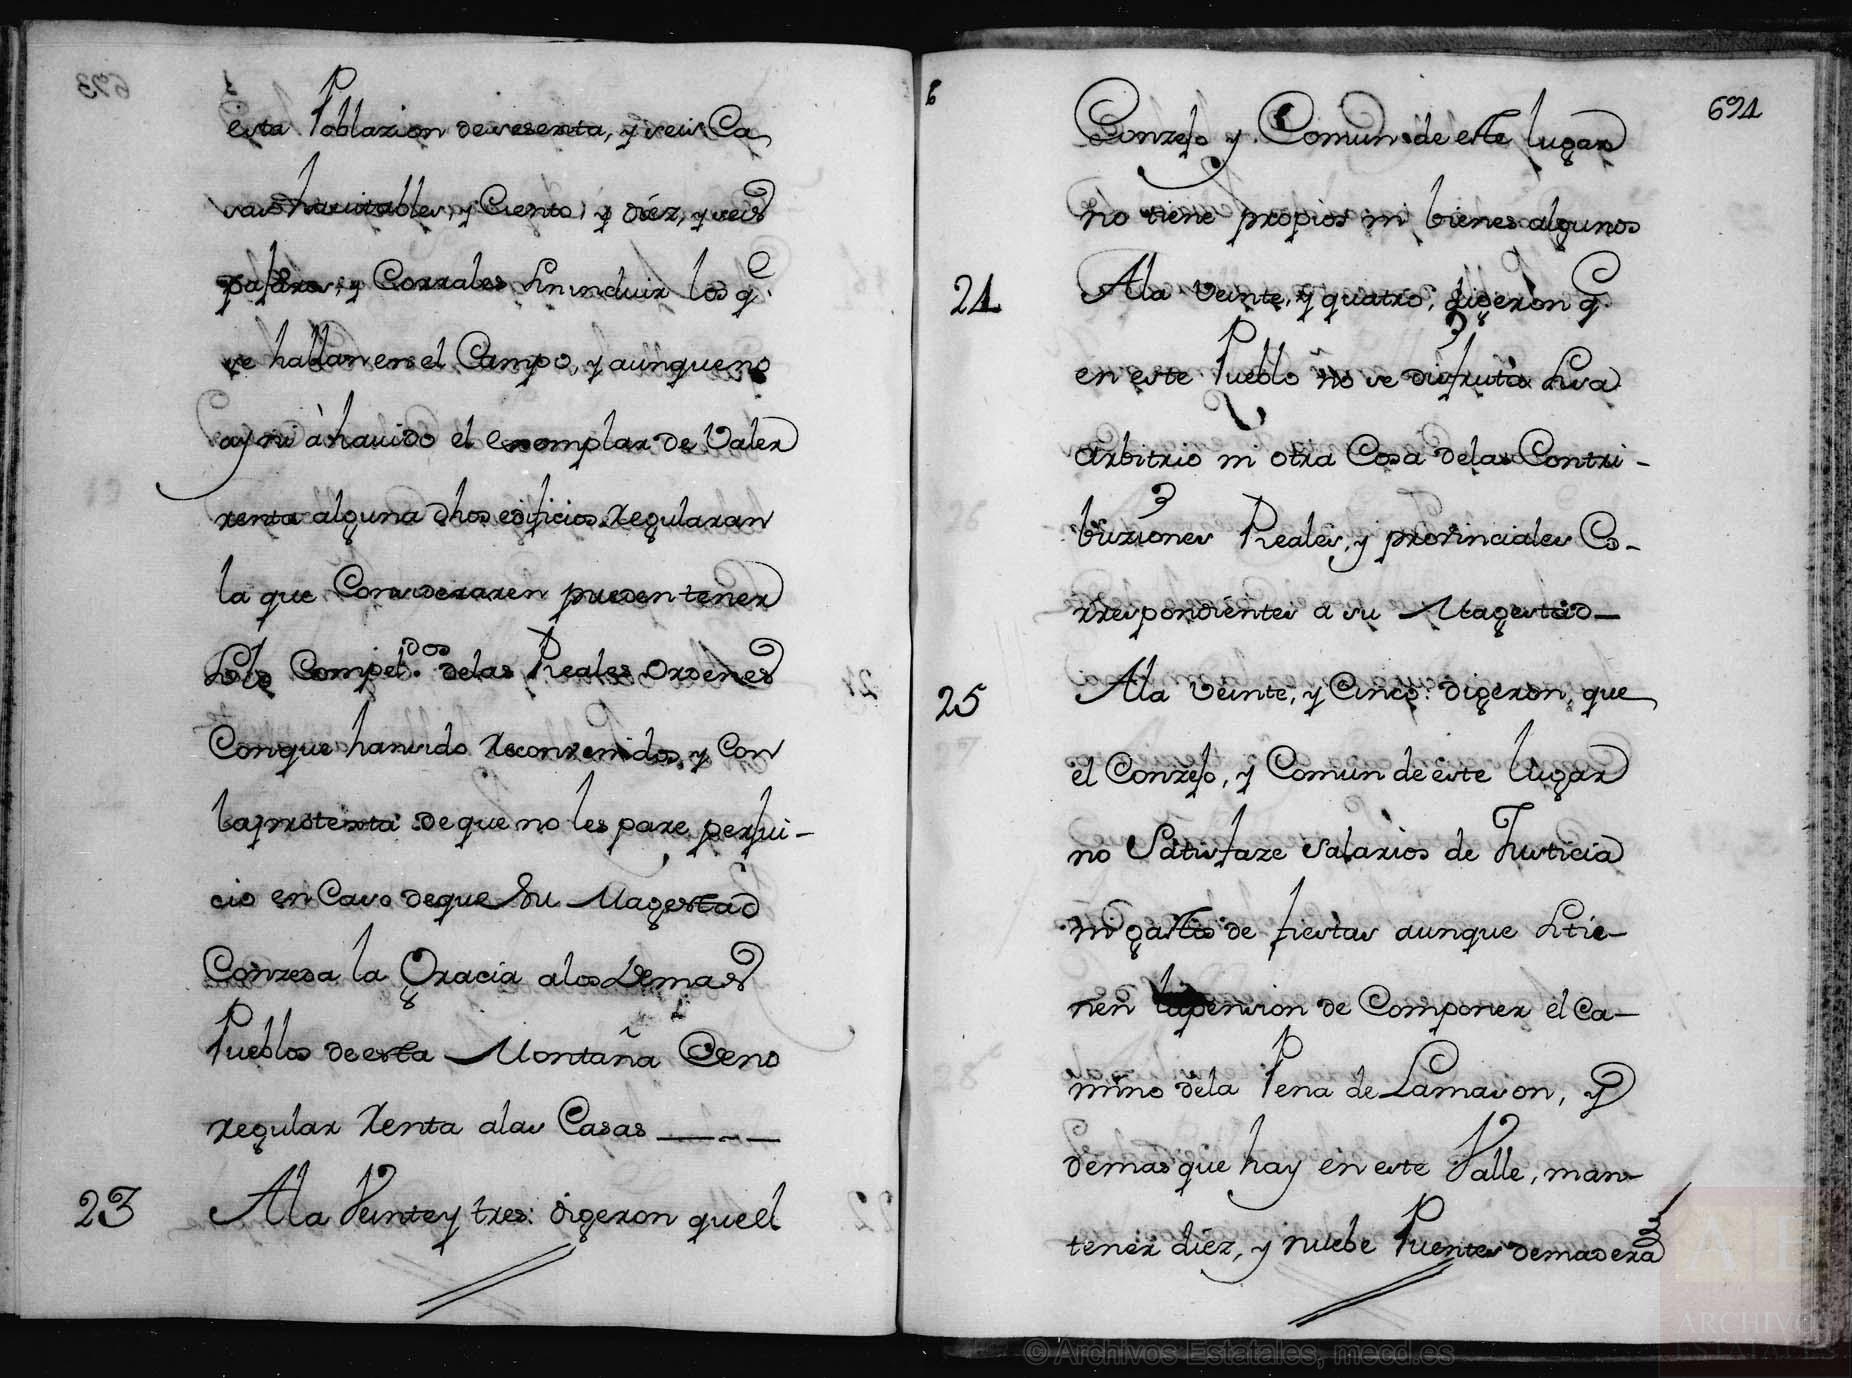 esta Poblazion de sesenta, y seis Ca
sas havitables, y Ciento, y diéz, y seis
pajares, y Corrales sin incluir los q.e
se hallan en el Campo, y aunque no
ay ni à havido el exomplar de Valer
renta alguna dhos edificios regularan
la que Consideraren pueden tener
solo Compel.dos delas Reales ordenes
Conque han sido reconvenidos, y con
la protexta de que no les pare perjui-
cio en Caso de que Su Magestad
Conzeda la Gracia a los Demas
Pueblos de esta Montaña De no
regular Renta alas Casas
23 Ala Veinte y tres: digeron que el
694
Conzejo y Comun de este lugar
no tiene propios ni bienes algunos
24 Ala Veinte, y quatro, digeron q.
en este Pueblo no se disfruta sisa
arbitrio ni otra Cosa delas Contri-
buziones Reales, y provinciales Co-
rrespondientes a su Magestad
25 Ala Veinte, y Cinco: digeron, que
el Conzejo, y Comun de este lugar
no Satisfaze Salarios de Justicia
ni gastos de fiestas aunque si tie-
nen la pension de Componer el Ca-
mino dela Pena de Lamason, y
demas que hay en este Valle, man-
tener diéz, y nuebe Puentes de madera
© Archivos Estatales, mecd.es
AE
ARCHIVOS
ESTATALES